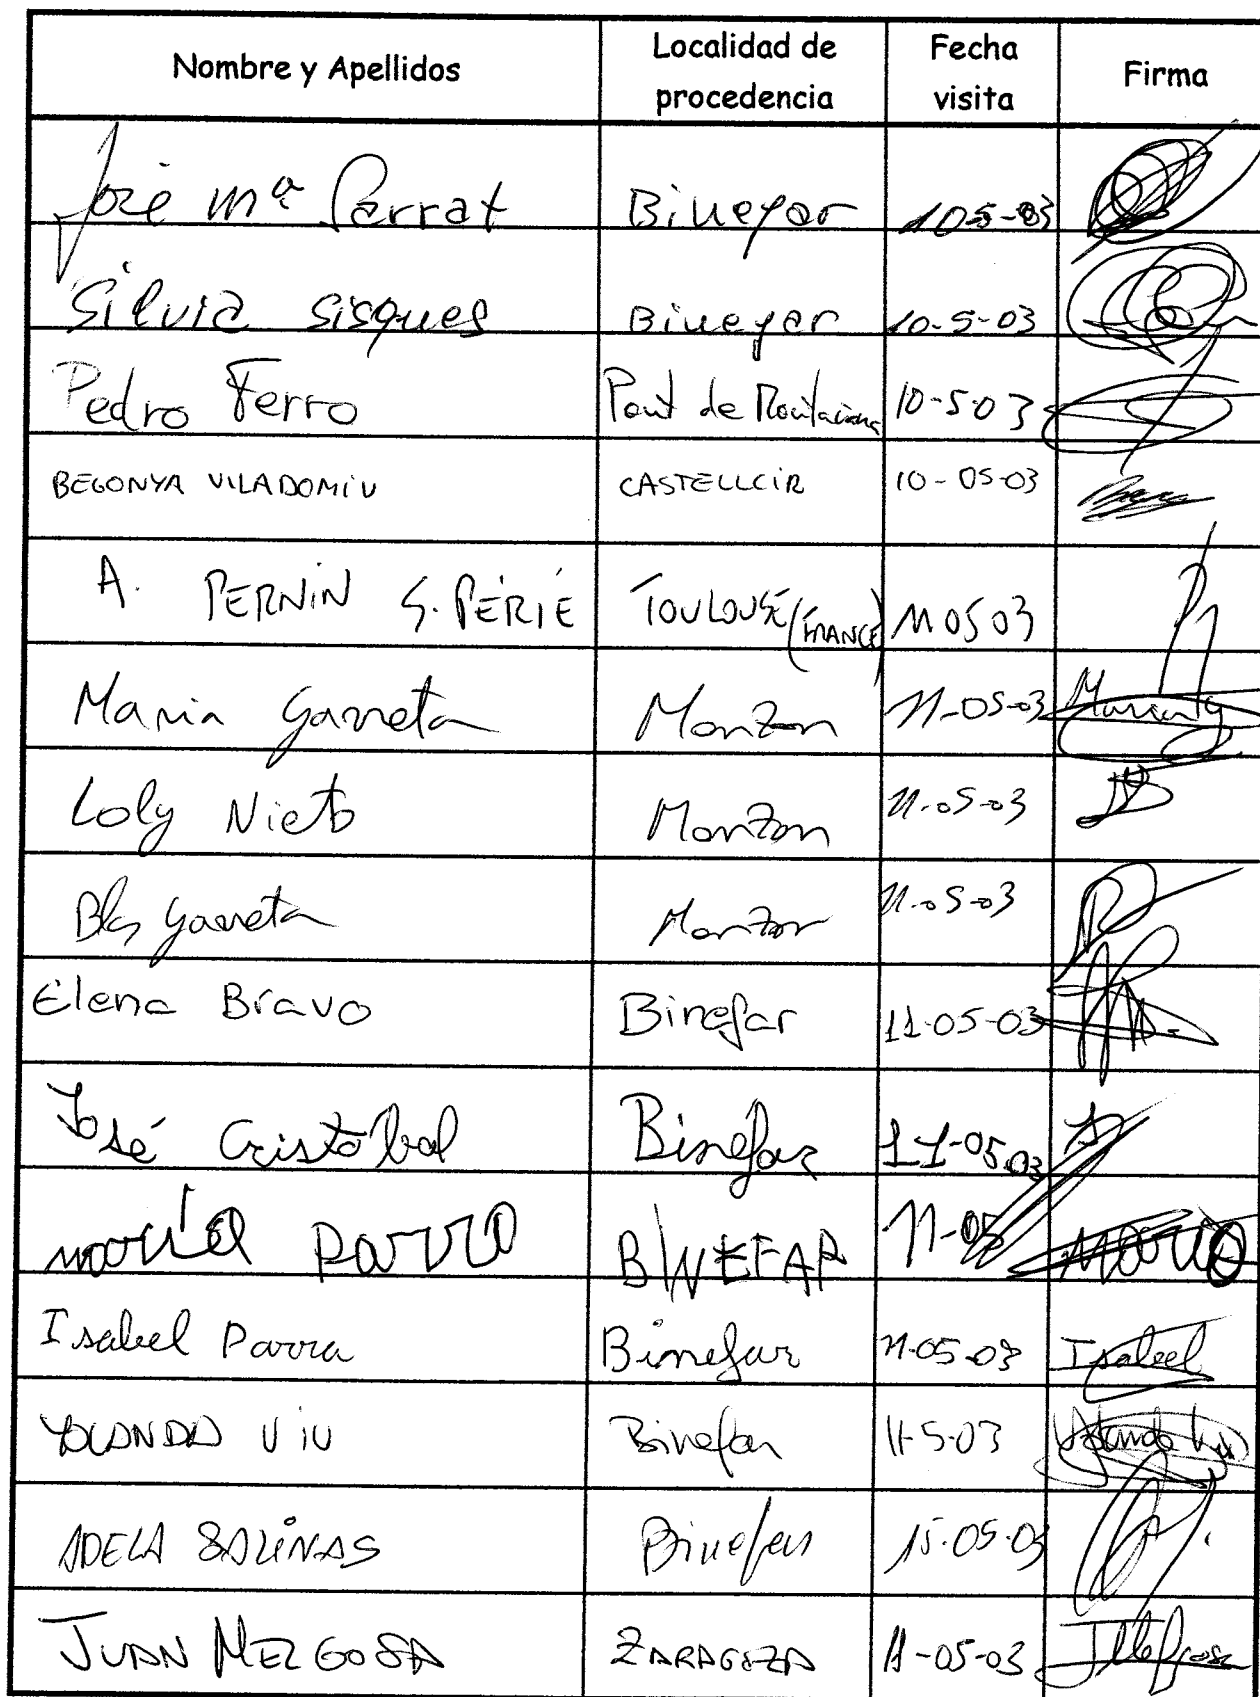 Nombre y Apellidos Localidad de procedencia Fecha visita Firma
José Mª Parrat Binefar 10-5-03
Silvia Sisques Binefar 10-5-03
Pedro Ferro Pont de Montañana 10-5-03
BEGONYA VILADOMIU CASTELLCIR 10-05-03
A. PERNIN S. PÉRIÉ TOULOUSE (FRANCE) 11 05 03
Maria Garreta Monzon 11-05-03
Loly Nieto Monzon 11-05-03
Blas Garreta Monzon 11-05-03
Elena Bravo Binefar 11-05-03
José Cristobal Binefar 11-05-03
maría parra BINEFAR 11-05
Isabel Parra Binefar 11-05-03 Isabel
YOLANDA VIU Binefar 11-5-03 Yolanda Viu
ADELA SALINAS Binefar 15-05-03
JUAN MELGOSA ZARAGOZA 11-05-03